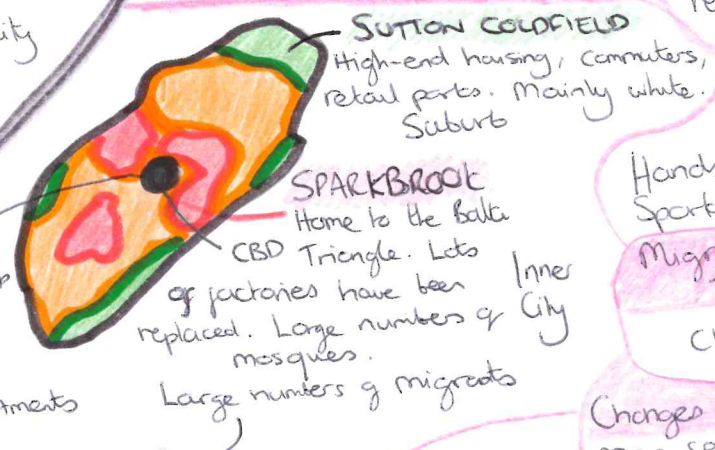 ity
SUTTON COLDFIELD
High-end housing, commuters,
retail parks. Mainly white.
Suburb
SPARKBROOK
Home to the Balti
CBD Triangle. Lots
of factories have been
replaced. Large numbers of
mosques.
Inner
City
Large numbers of migrants
Hand
Spark
Migr
Changes
aments